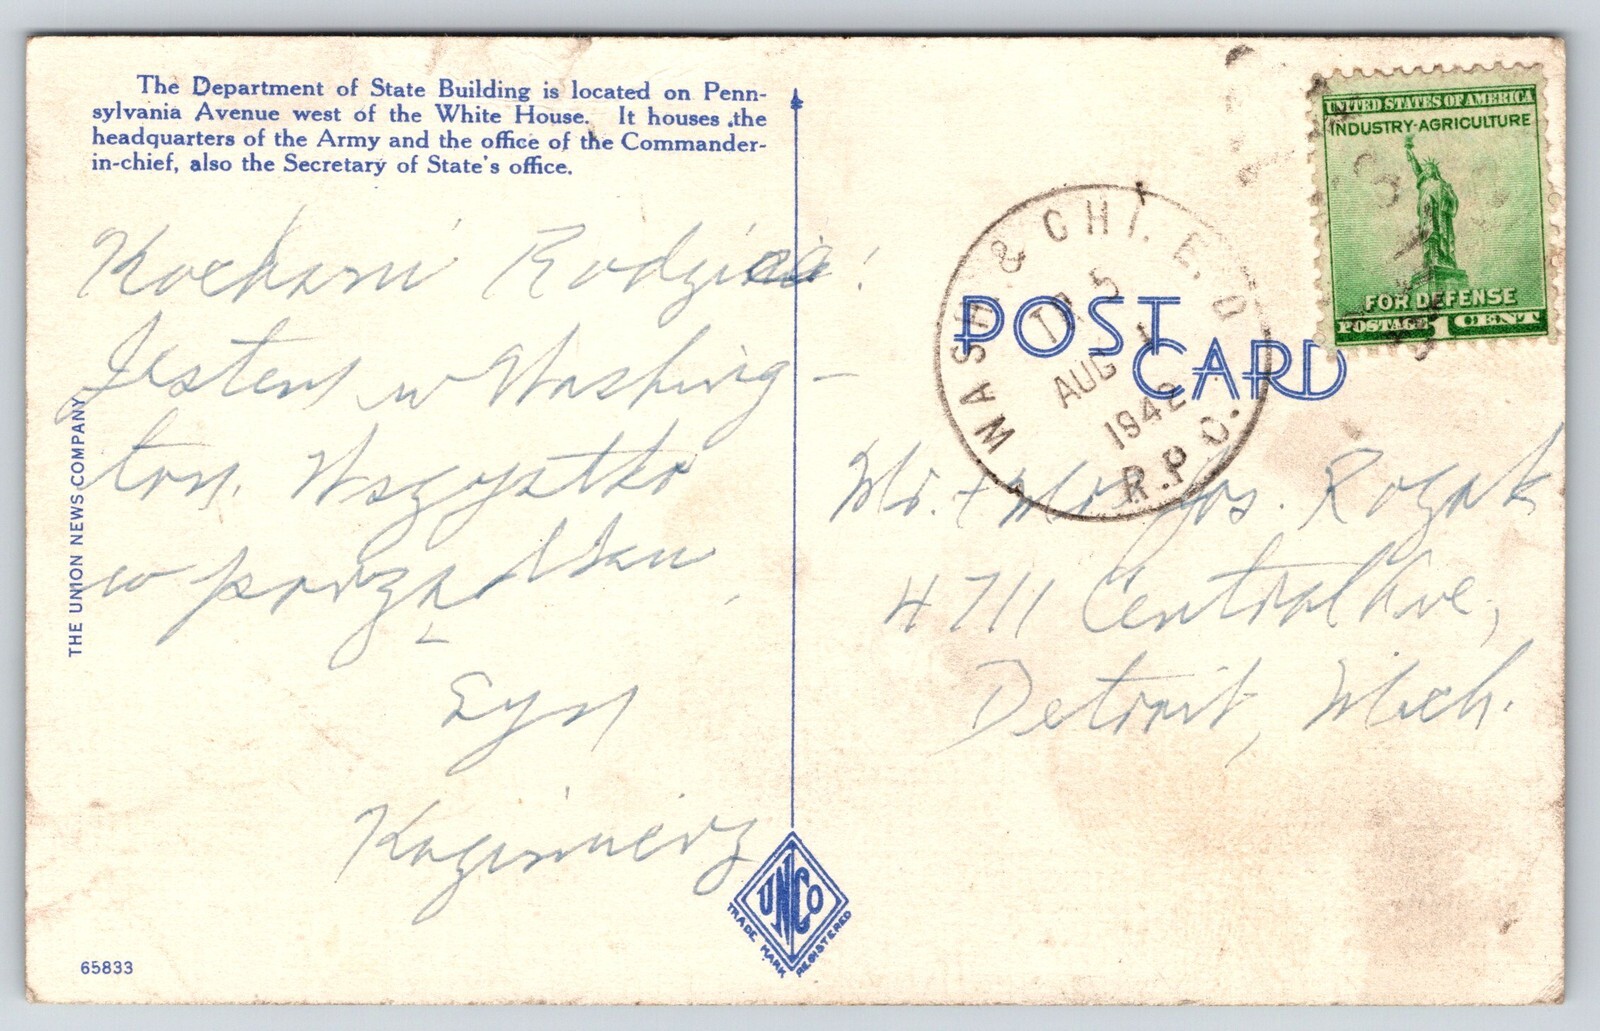 The Department of State Building is located on Penn-
sylvania Avenue west of the White House. It houses the
headquarters of the Army and the office of the Commander-
in-chief, also the Secretary of State's office.
Kochani Rodzice!
Jestem w Washing-
ton. Wszystko
w porządku,
Syn
Kazimierz
THE UNION NEWS COMPANY
65833
UNCO
TRADE MARK REGISTERED
POST
CARD
WASH. & CHI. E. D.
TR 5
AUG 1
1942
R.P.O.
UNITED STATES OF AMERICA
INDUSTRY-AGRICULTURE
FOR DEFENSE
POSTAGE 1 CENT
Mr. + Mrs Jos. Rozak
4711 Central Ave,
Detroit, Mich.